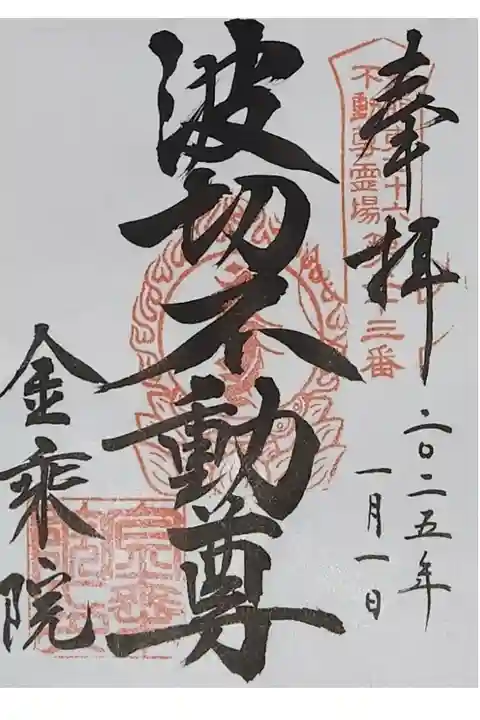 奉拝
不動尊霊場
三番
二〇二五年
一月一日
波切不動尊
金乗院